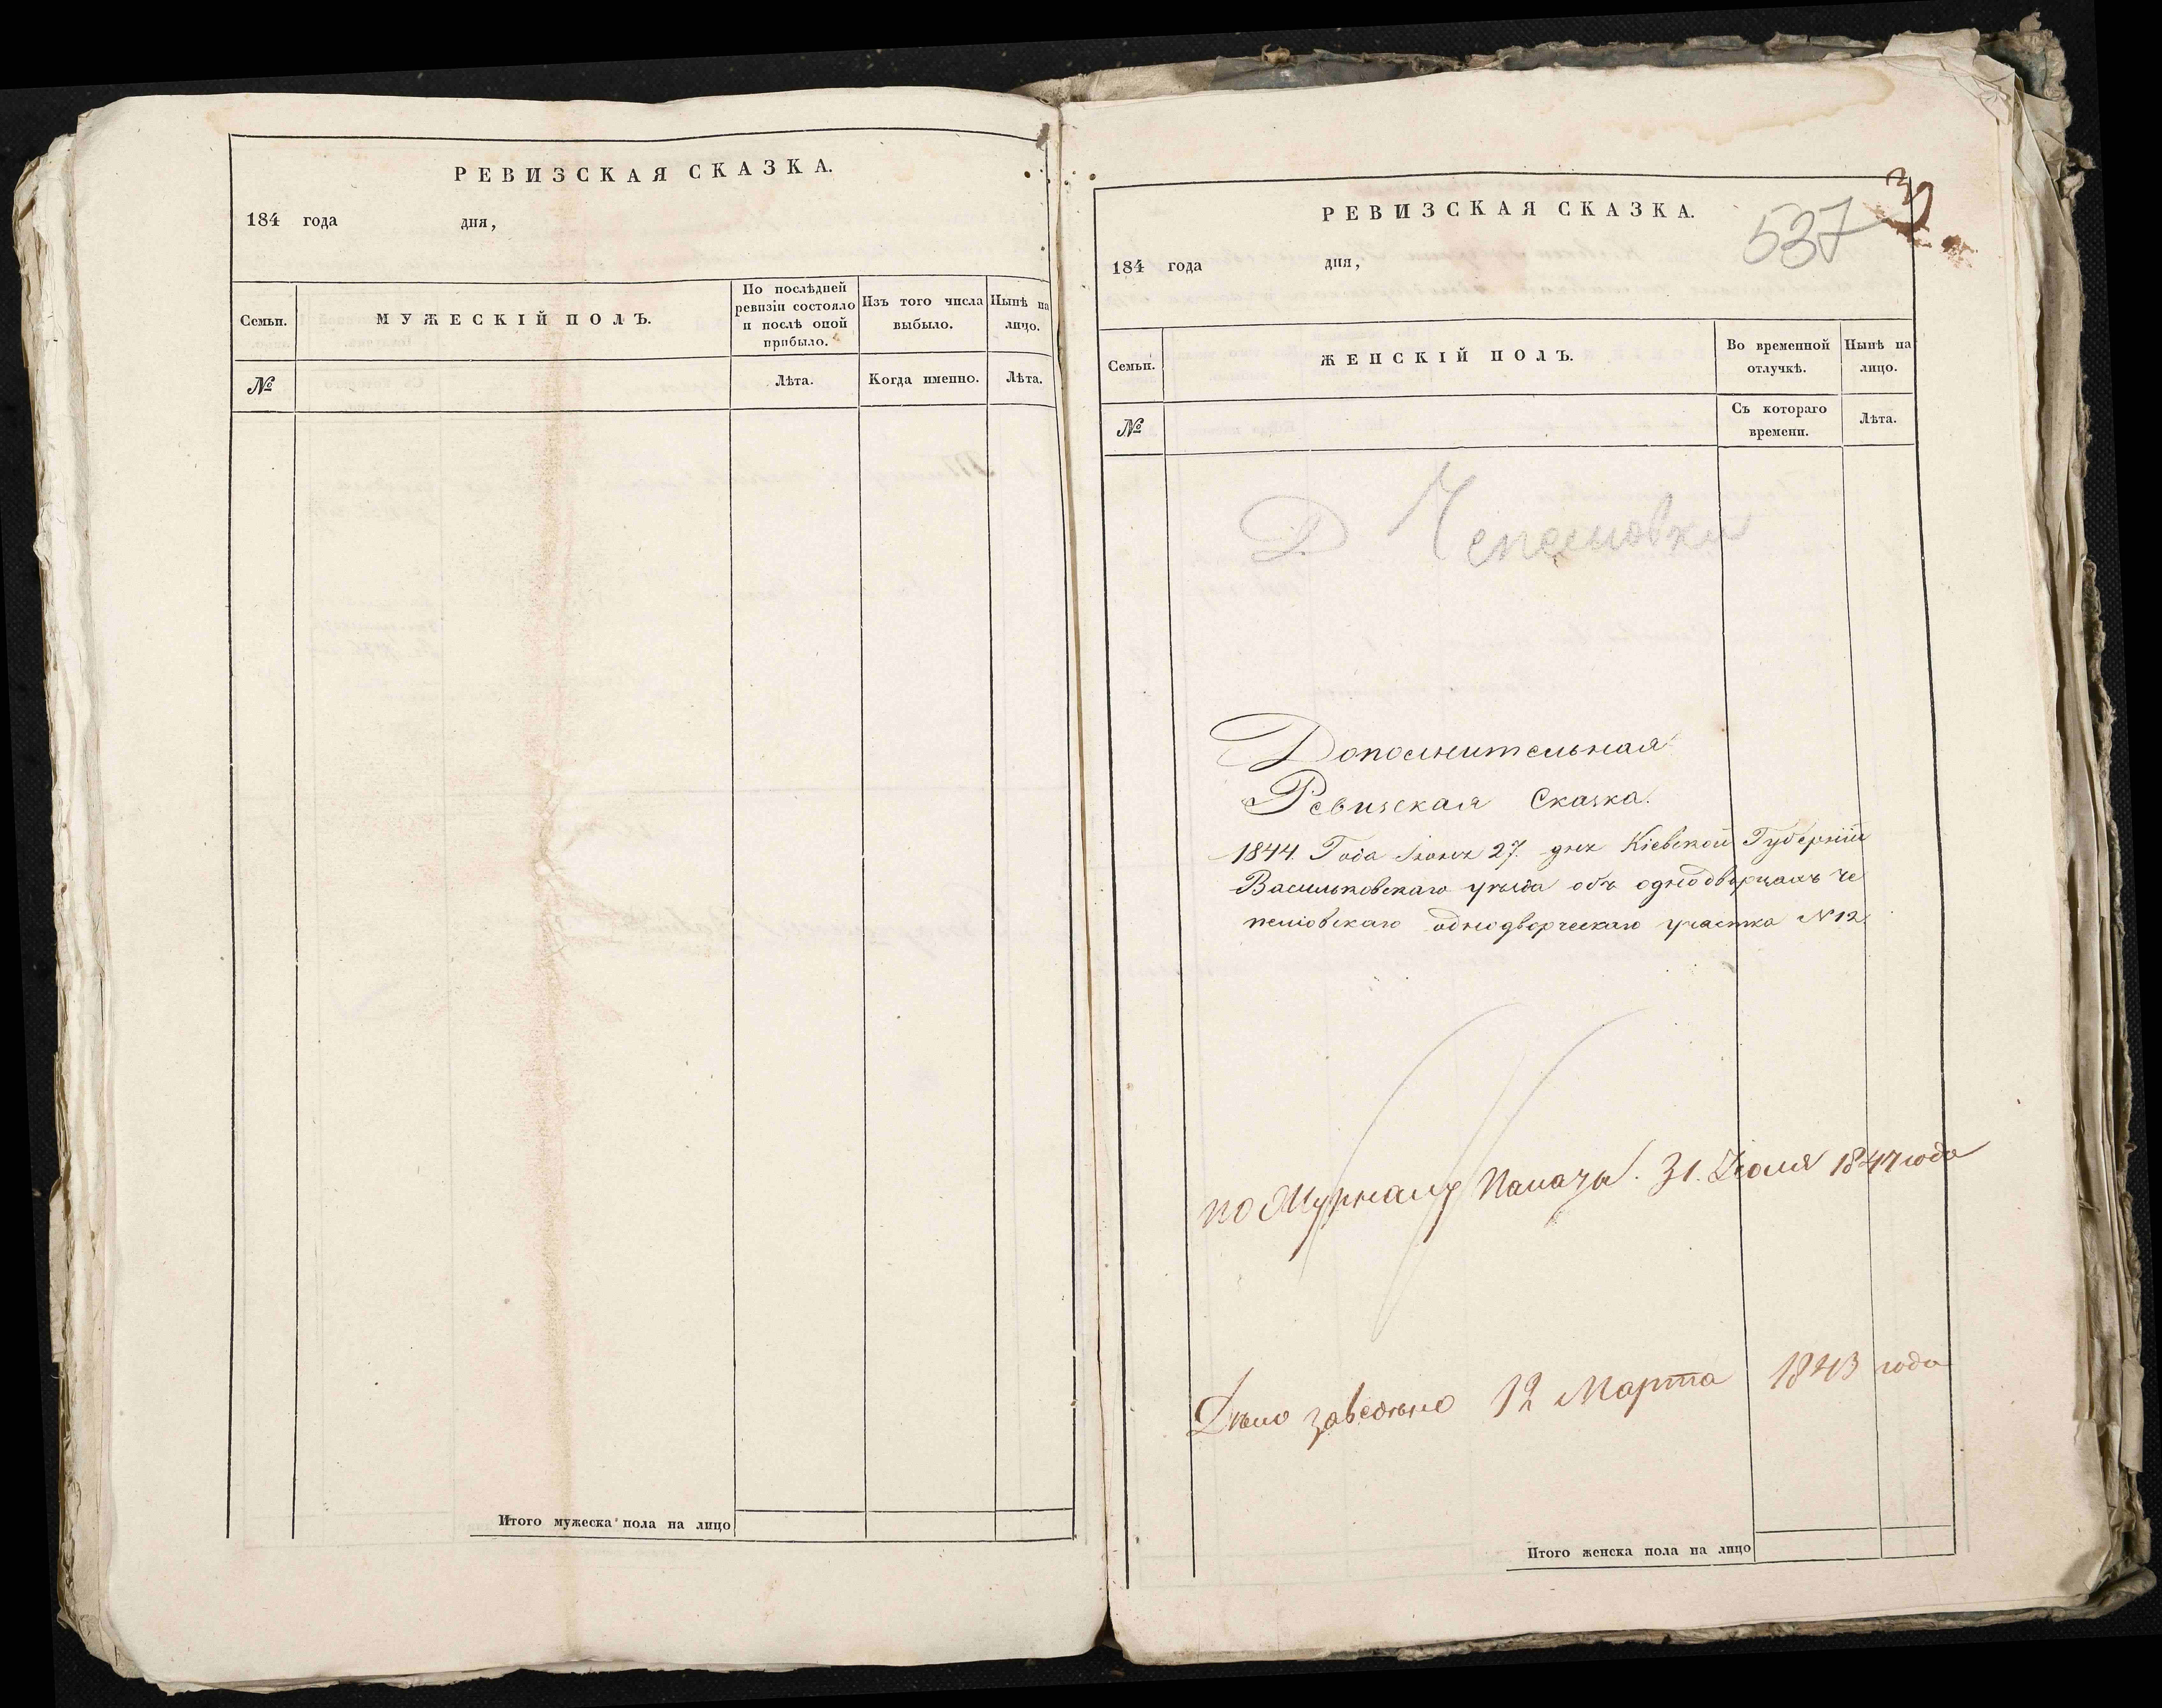 РЕВИЗСКАЯ СКАЗКА.
184 года дня,
Семьи.
МУЖЕСКІЙ ПОЛЪ.
По послѣдней ревизіи состояло и послѣ оной прибыло.
Изъ того числа выбыло.
Нынѣ на лицо.
№
Лѣта.
Когда именно.
Лѣта.
Итого мужеска пола на лицо
РЕВИЗСКАЯ СКАЗКА.
537
3
184 года дня,
Семьи.
ЖЕНСКІЙ ПОЛЪ.
Во временной отлучкѣ.
Нынѣ на лицо.
№
Съ котораго времени.
Лѣта.
Д Чепелиовка
Дополнительная
Ревизская Сказка.
1844 Года Іюня 27. дня Кіевской Губерніи
Васильковскаго уѣзда объ однодворцахъ Че
пелиовскаго однодворческаго участка №12.
по Журналу Палаты. 31. Іюля 1847 года
Дѣло заведѣно 12 Марта 1843 года
Итого женска пола на лицо